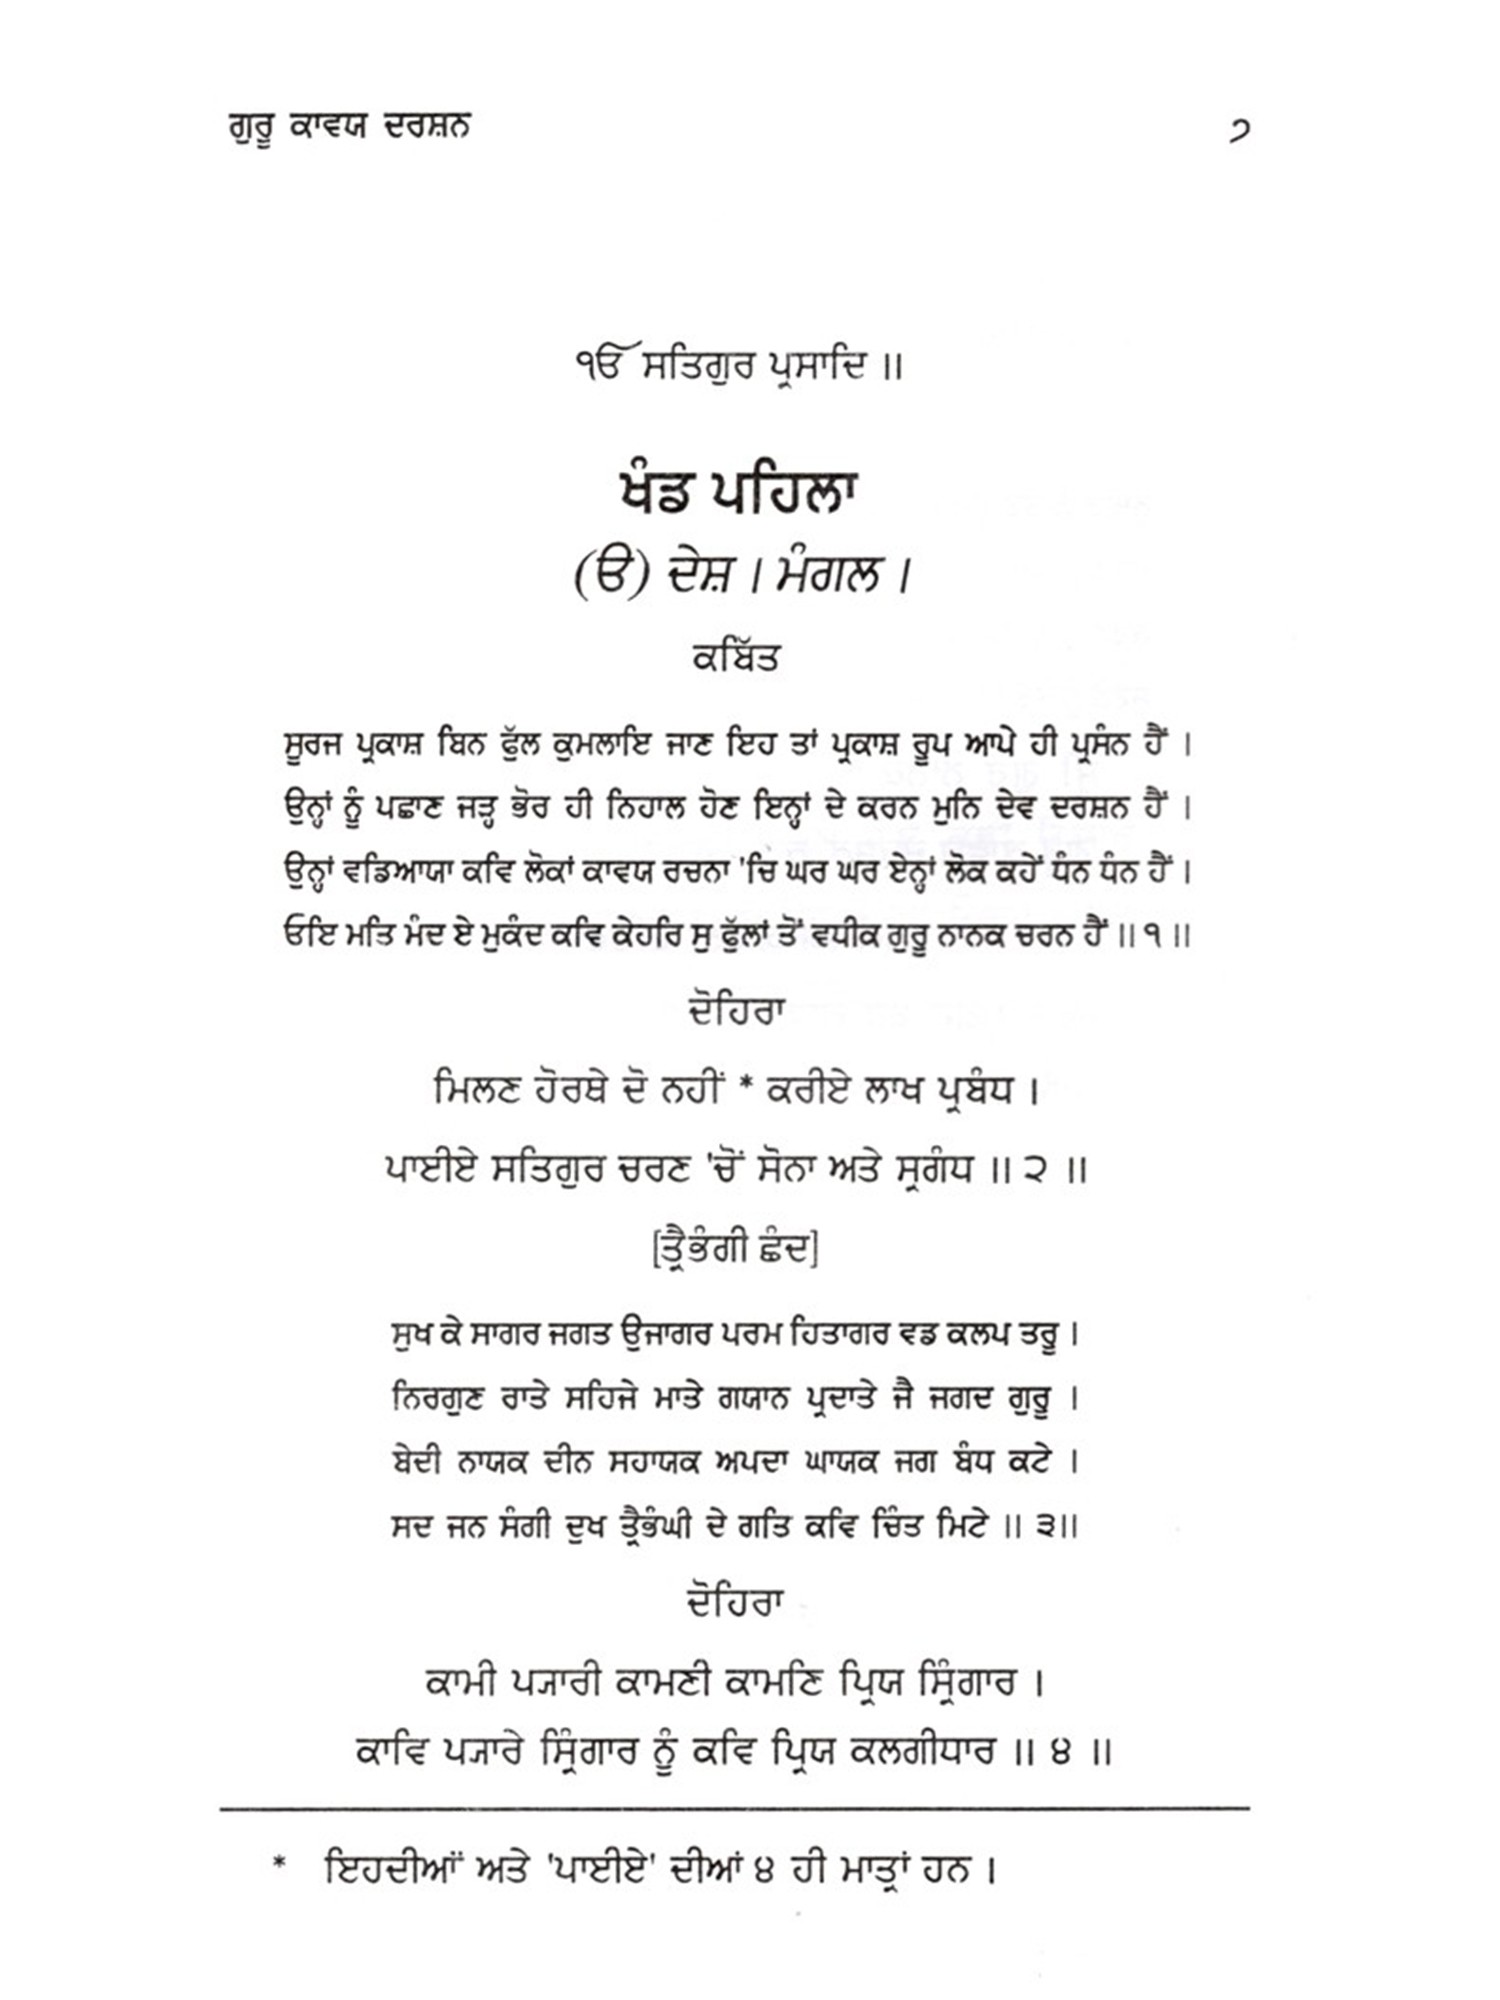 ਗੁਰੂ ਕਾਵਯ ਦਰਸ਼ਨ ੭
ੴ ਸਤਿਗੁਰ ਪ੍ਰਸਾਦਿ ॥
ਖੰਡ ਪਹਿਲਾ
(ੳ) ਦੇਸ਼ । ਮੰਗਲ ।
ਕਬਿੱਤ
ਸੂਰਜ ਪ੍ਰਕਾਸ਼ ਬਿਨ ਫੁੱਲ ਕੁਮਲਾਇ ਜਾਣ ਇਹ ਤਾਂ ਪ੍ਰਕਾਸ਼ ਰੂਪ ਆਪੇ ਹੀ ਪ੍ਰਸੰਨ ਹੈਂ ।
ਉਨ੍ਹਾਂ ਨੂੰ ਪਛਾਣ ਜੜ੍ਹ ਭੋਰ ਹੀ ਨਿਹਾਲ ਹੋਣ ਇਨ੍ਹਾਂ ਦੇ ਕਰਨ ਮੁਨਿ ਦੇਵ ਦਰਸ਼ਨ ਹੈਂ ।
ਉਨ੍ਹਾਂ ਵਡਿਆਯਾ ਕਵਿ ਲੋਕਾਂ ਕਾਵਯ ਰਚਨਾ 'ਚਿ ਘਰ ਘਰ ਏਨ੍ਹਾਂ ਲੋਕ ਕਹੇਂ ਧੰਨ ਧੰਨ ਹੈਂ ।
ਓਇ ਮਤਿ ਮੰਦ ਏ ਮੁਕੰਦ ਕਵਿ ਕੇਹਰਿ ਸੁ ਫੁੱਲਾਂ ਤੋਂ ਵਧੀਕ ਗੁਰੂ ਨਾਨਕ ਚਰਨ ਹੈਂ ॥ ੧ ॥
ਦੋਹਿਰਾ
ਮਿਲਣ ਹੋਰਥੇ ਦੋ ਨਹੀਂ * ਕਰੀਏ ਲਾਖ ਪ੍ਰਬੰਧ ।
ਪਾਈਏ ਸਤਿਗੁਰ ਚਰਣ 'ਚੋਂ ਸੋਨਾ ਅਤੇ ਸੁਗੰਧ ॥ ੨ ॥
[ਤ੍ਰੈਭੰਗੀ ਛੰਦ]
ਸੁਖ ਕੇ ਸਾਗਰ ਜਗਤ ਉਜਾਗਰ ਪਰਮ ਹਿਤਾਗਰ ਵਡ ਕਲਪ ਤਰੂ ।
ਨਿਰਗੁਣ ਰਾਤੇ ਸਹਿਜੇ ਮਾਤੇ ਗਯਾਨ ਪ੍ਰਦਾਤੇ ਜੈ ਜਗਦ ਗੁਰੂ ।
ਬੇਦੀ ਨਾਯਕ ਦੀਨ ਸਹਾਯਕ ਅਪਦਾ ਘਾਯਕ ਜਗ ਬੰਧ ਕਟੇ ।
ਸਦ ਜਨ ਸੰਗੀ ਦੁਖ ਤ੍ਰੈਭੰਘੀ ਦੇ ਗਤਿ ਕਵਿ ਚਿੰਤ ਮਿਟੇ ॥ ੩॥
ਦੋਹਿਰਾ
ਕਾਮੀ ਪ੍ਯਾਰੀ ਕਾਮਣੀ ਕਾਮਣਿ ਪ੍ਰਿਯ ਸ੍ਰਿੰਗਾਰ ।
ਕਾਵਿ ਪ੍ਯਾਰੇ ਸ੍ਰਿੰਗਾਰ ਨੂੰ ਕਵਿ ਪ੍ਰਿਯ ਕਲਗੀਧਾਰ ॥ ੪ ॥
* ਇਹਦੀਆਂ ਅਤੇ 'ਪਾਈਏ' ਦੀਆਂ ੪ ਹੀ ਮਾਤ੍ਰਾਂ ਹਨ ।